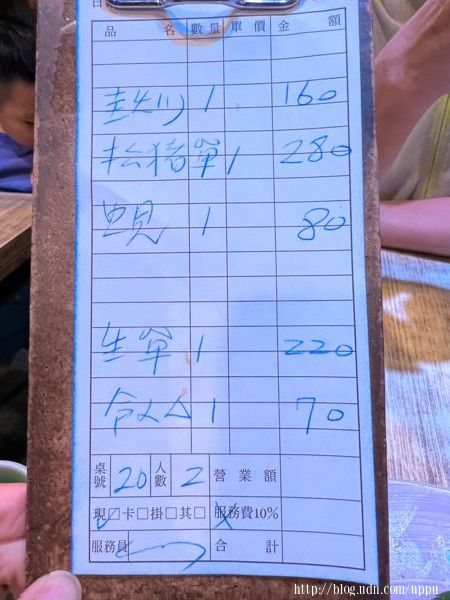 日
品 名 數量 單價 金 額
1 160
松豬單 1 280
蜆 1 80
生單 1 220
1 70
桌號 20 人數 2 營業額
現☑卡☐掛☐其☐ 服務費10%
服務員 合 計
http://blog.udn.com/uppu